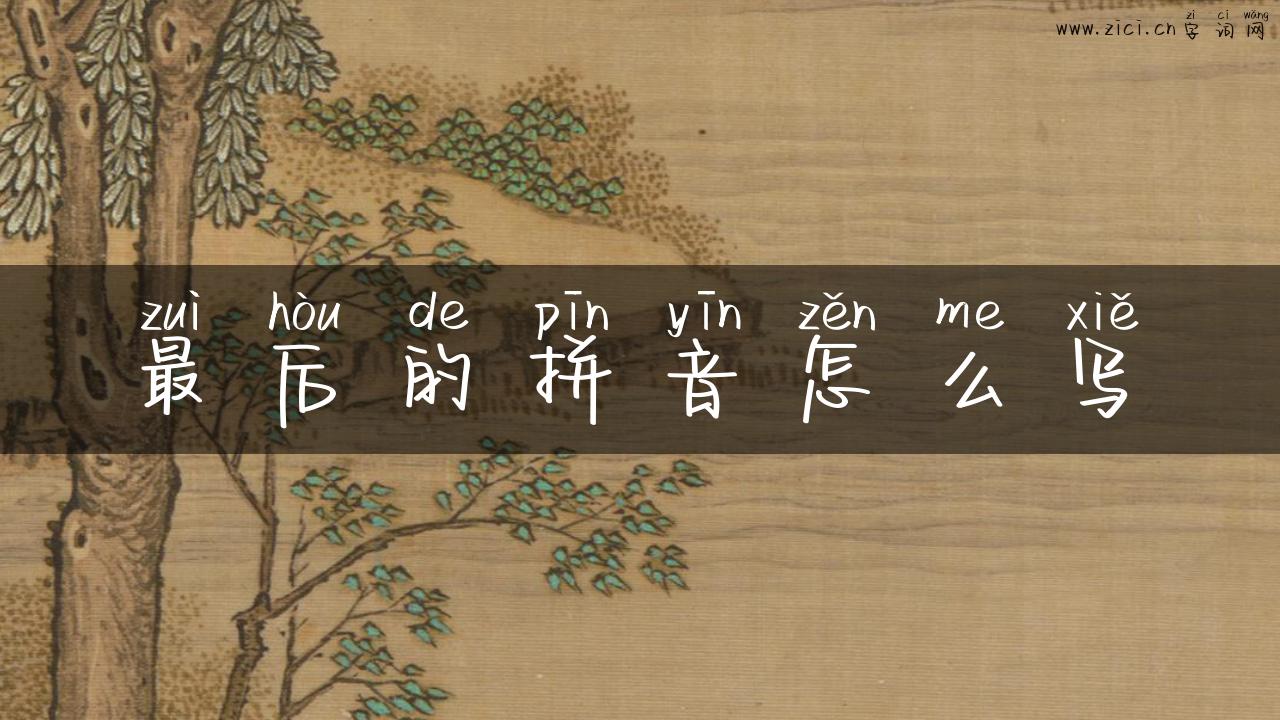 zì cí wǎng
www.zici.cn 字 词 网
zuì hòu de pīn yīn zěn me xiě
最 后 的 拼 音 怎 么 写